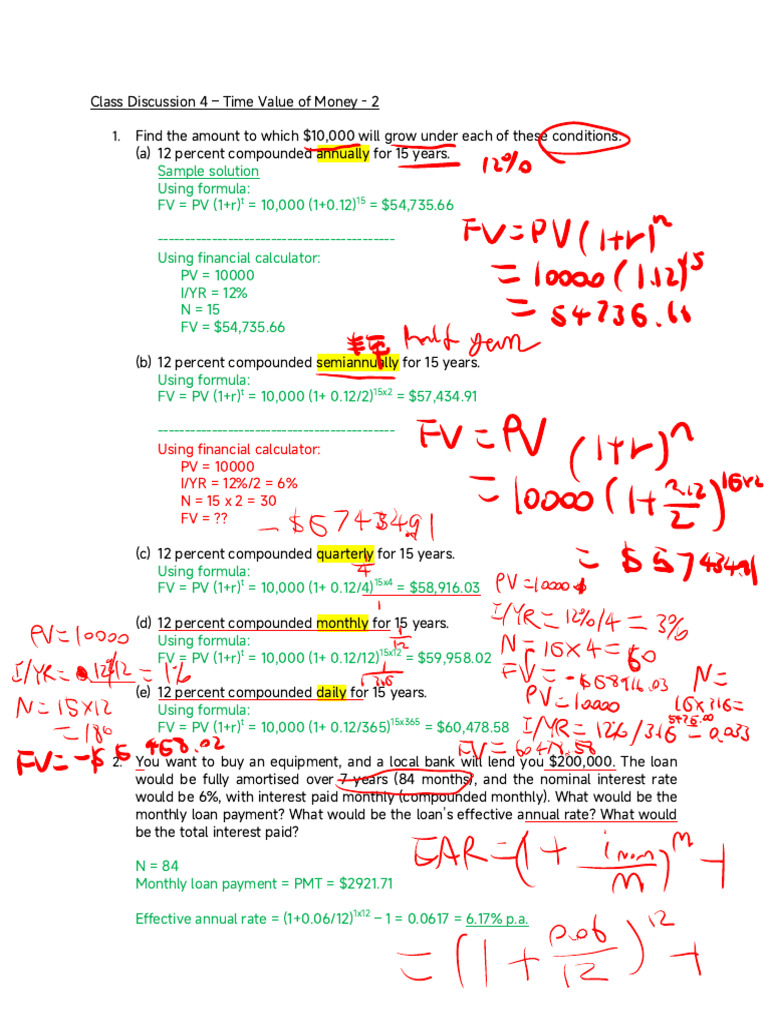 Class Discussion 4 – Time Value of Money - 2
1. Find the amount to which $10,000 will grow under each of these conditions.
(a) 12 percent compounded annually for 15 years.
12%
Sample solution
Using formula:
FV = PV (1+r)^t = 10,000 (1+0.12)^15 = $54,735.66
--------------------------------------------
FV = PV (1+r)^n
= 10000 (1.12)^15
= 54736.66
Using financial calculator:
PV = 10000
I/YR = 12%
N = 15
FV = $54,735.66
half year
(b) 12 percent compounded semiannually for 15 years.
Using formula:
FV = PV (1+r)^t = 10,000 (1+ 0.12/2)^15x2 = $57,434.91
--------------------------------------------
FV = PV (1+r)^n
Using financial calculator:
PV = 10000
I/YR = 12%/2 = 6%
N = 15 x 2 = 30
FV = ??
(c) 12 percent compounded quarterly for 15 years.
4
Using formula:
FV = PV (1+r)^t = 10,000 (1+ 0.12/4)^15x4 = $58,916.03
PV = 10000
I/YR = 12%/4 = 3%
(d) 12 percent compounded monthly for 15 years.
1/12
Using formula:
FV = PV (1+r)^t = 10,000 (1+ 0.12/12)^15x12 = $59,958.02
PV = 10000
N = 15x12
= 180
(e) 12 percent compounded daily for 15 years.
PV = 10000
Using formula:
FV = PV (1+r)^t = 10,000 (1+ 0.12/365)^15x365 = $60,478.58
FV = 60478.58
2. You want to buy an equipment, and a local bank will lend you $200,000. The loan
would be fully amortised over 7 years (84 months), and the nominal interest rate
would be 6%, with interest paid monthly (compounded monthly). What would be the
monthly loan payment? What would be the loan's effective annual rate? What would
be the total interest paid?
EAR = (1 + iNom/m)^m - 1
N = 84
Monthly loan payment = PMT = $2921.71
Effective annual rate = (1+0.06/12)^1x12 – 1 = 0.0617 = 6.17% p.a.
= (1 + 0.06/12)^12 - 1